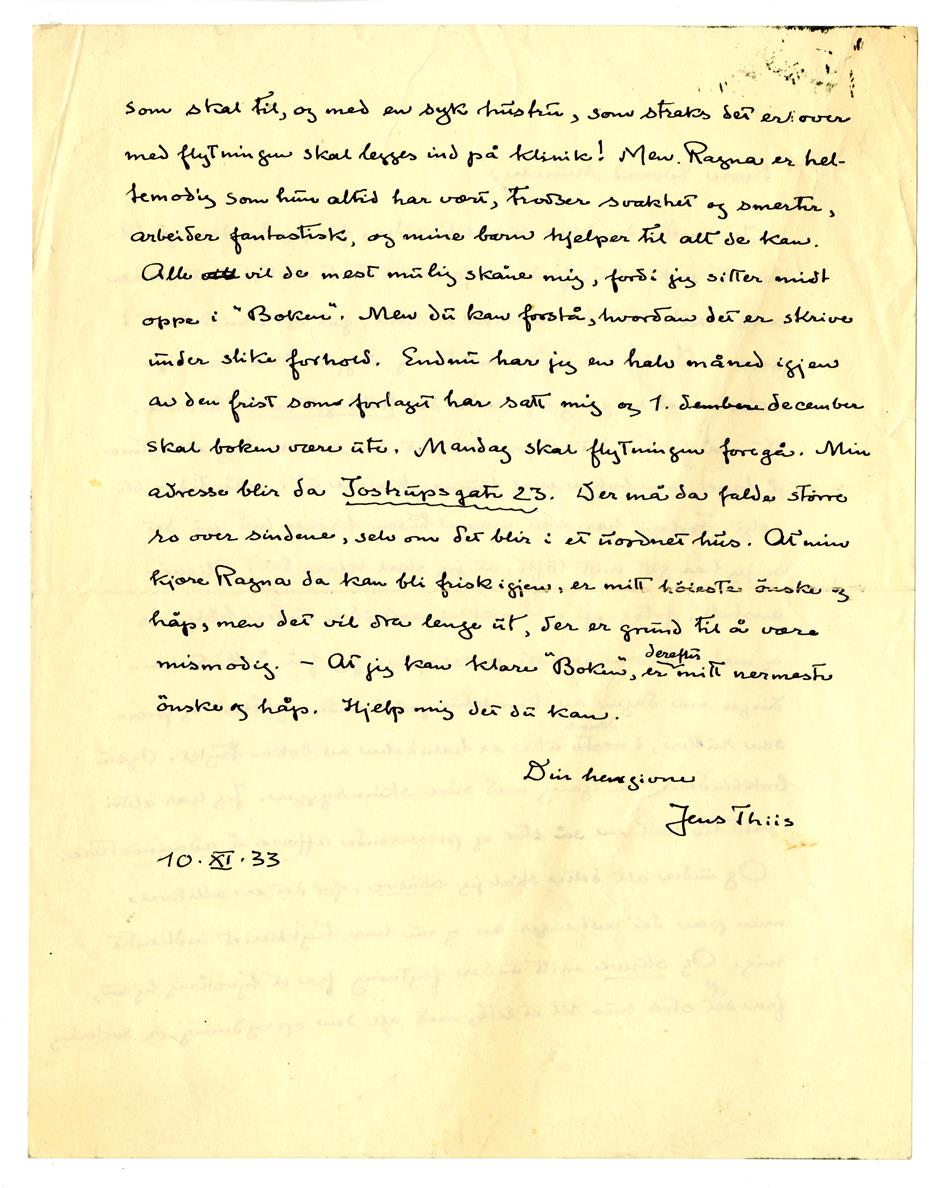 som skal til, og med en syk hustru, som straks det er over
med flytningen skal legges ind på klinik! Men Ragna er hel-
temodig som hun altid har vært, trodser svakhet og smerter,
arbeider fantastisk, og mine barn hjelper til alt de kan.
Alle vil de mest mulig skåne mig, fordi jeg sitter midt
oppe i "Boken". Men du kan forstå, hvordan det er skrive
under slike forhold. Endnu har jeg en halv måned igjen
av den frist som forlaget har satt mig og 1. december
skal boken være ute. Mandag skal flytningen foregå. Min
adresse blir da Tostrupsgate 23. Der må da falde større
ro over sindene, selv om det blir i et uordnet hus. At min
kjære Ragna da kan bli frisk igjen, er mitt höieste önske og
håp, men det vil dra lenge ut, der er grund til å være
mismodig. – At jeg kan klare "Boken", er derefter mitt nermeste
önske og håp. Hjelp mig det du kan.
Din hengivne
Jens Thiis
10. XI. 33